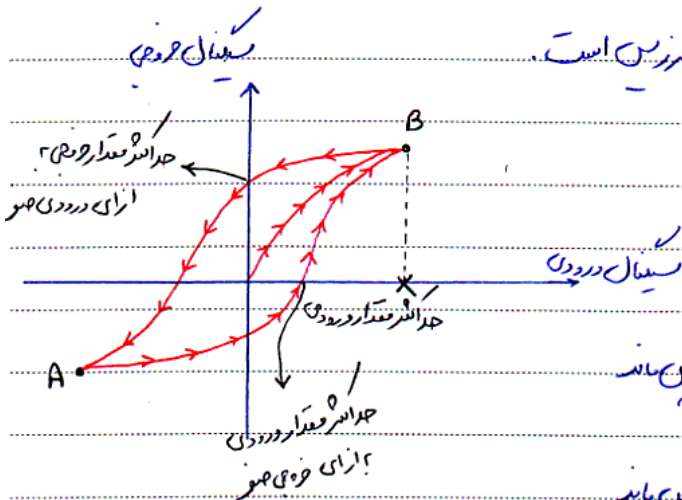 سیگنال خروجی
است.
B
حداکثر مقدار خروجی به
ازای ورودی صفر
سیگنال ورودی
حداکثر مقدار ورودی
A
حداکثر مقدار ورودی
به ازای خروجی صفر